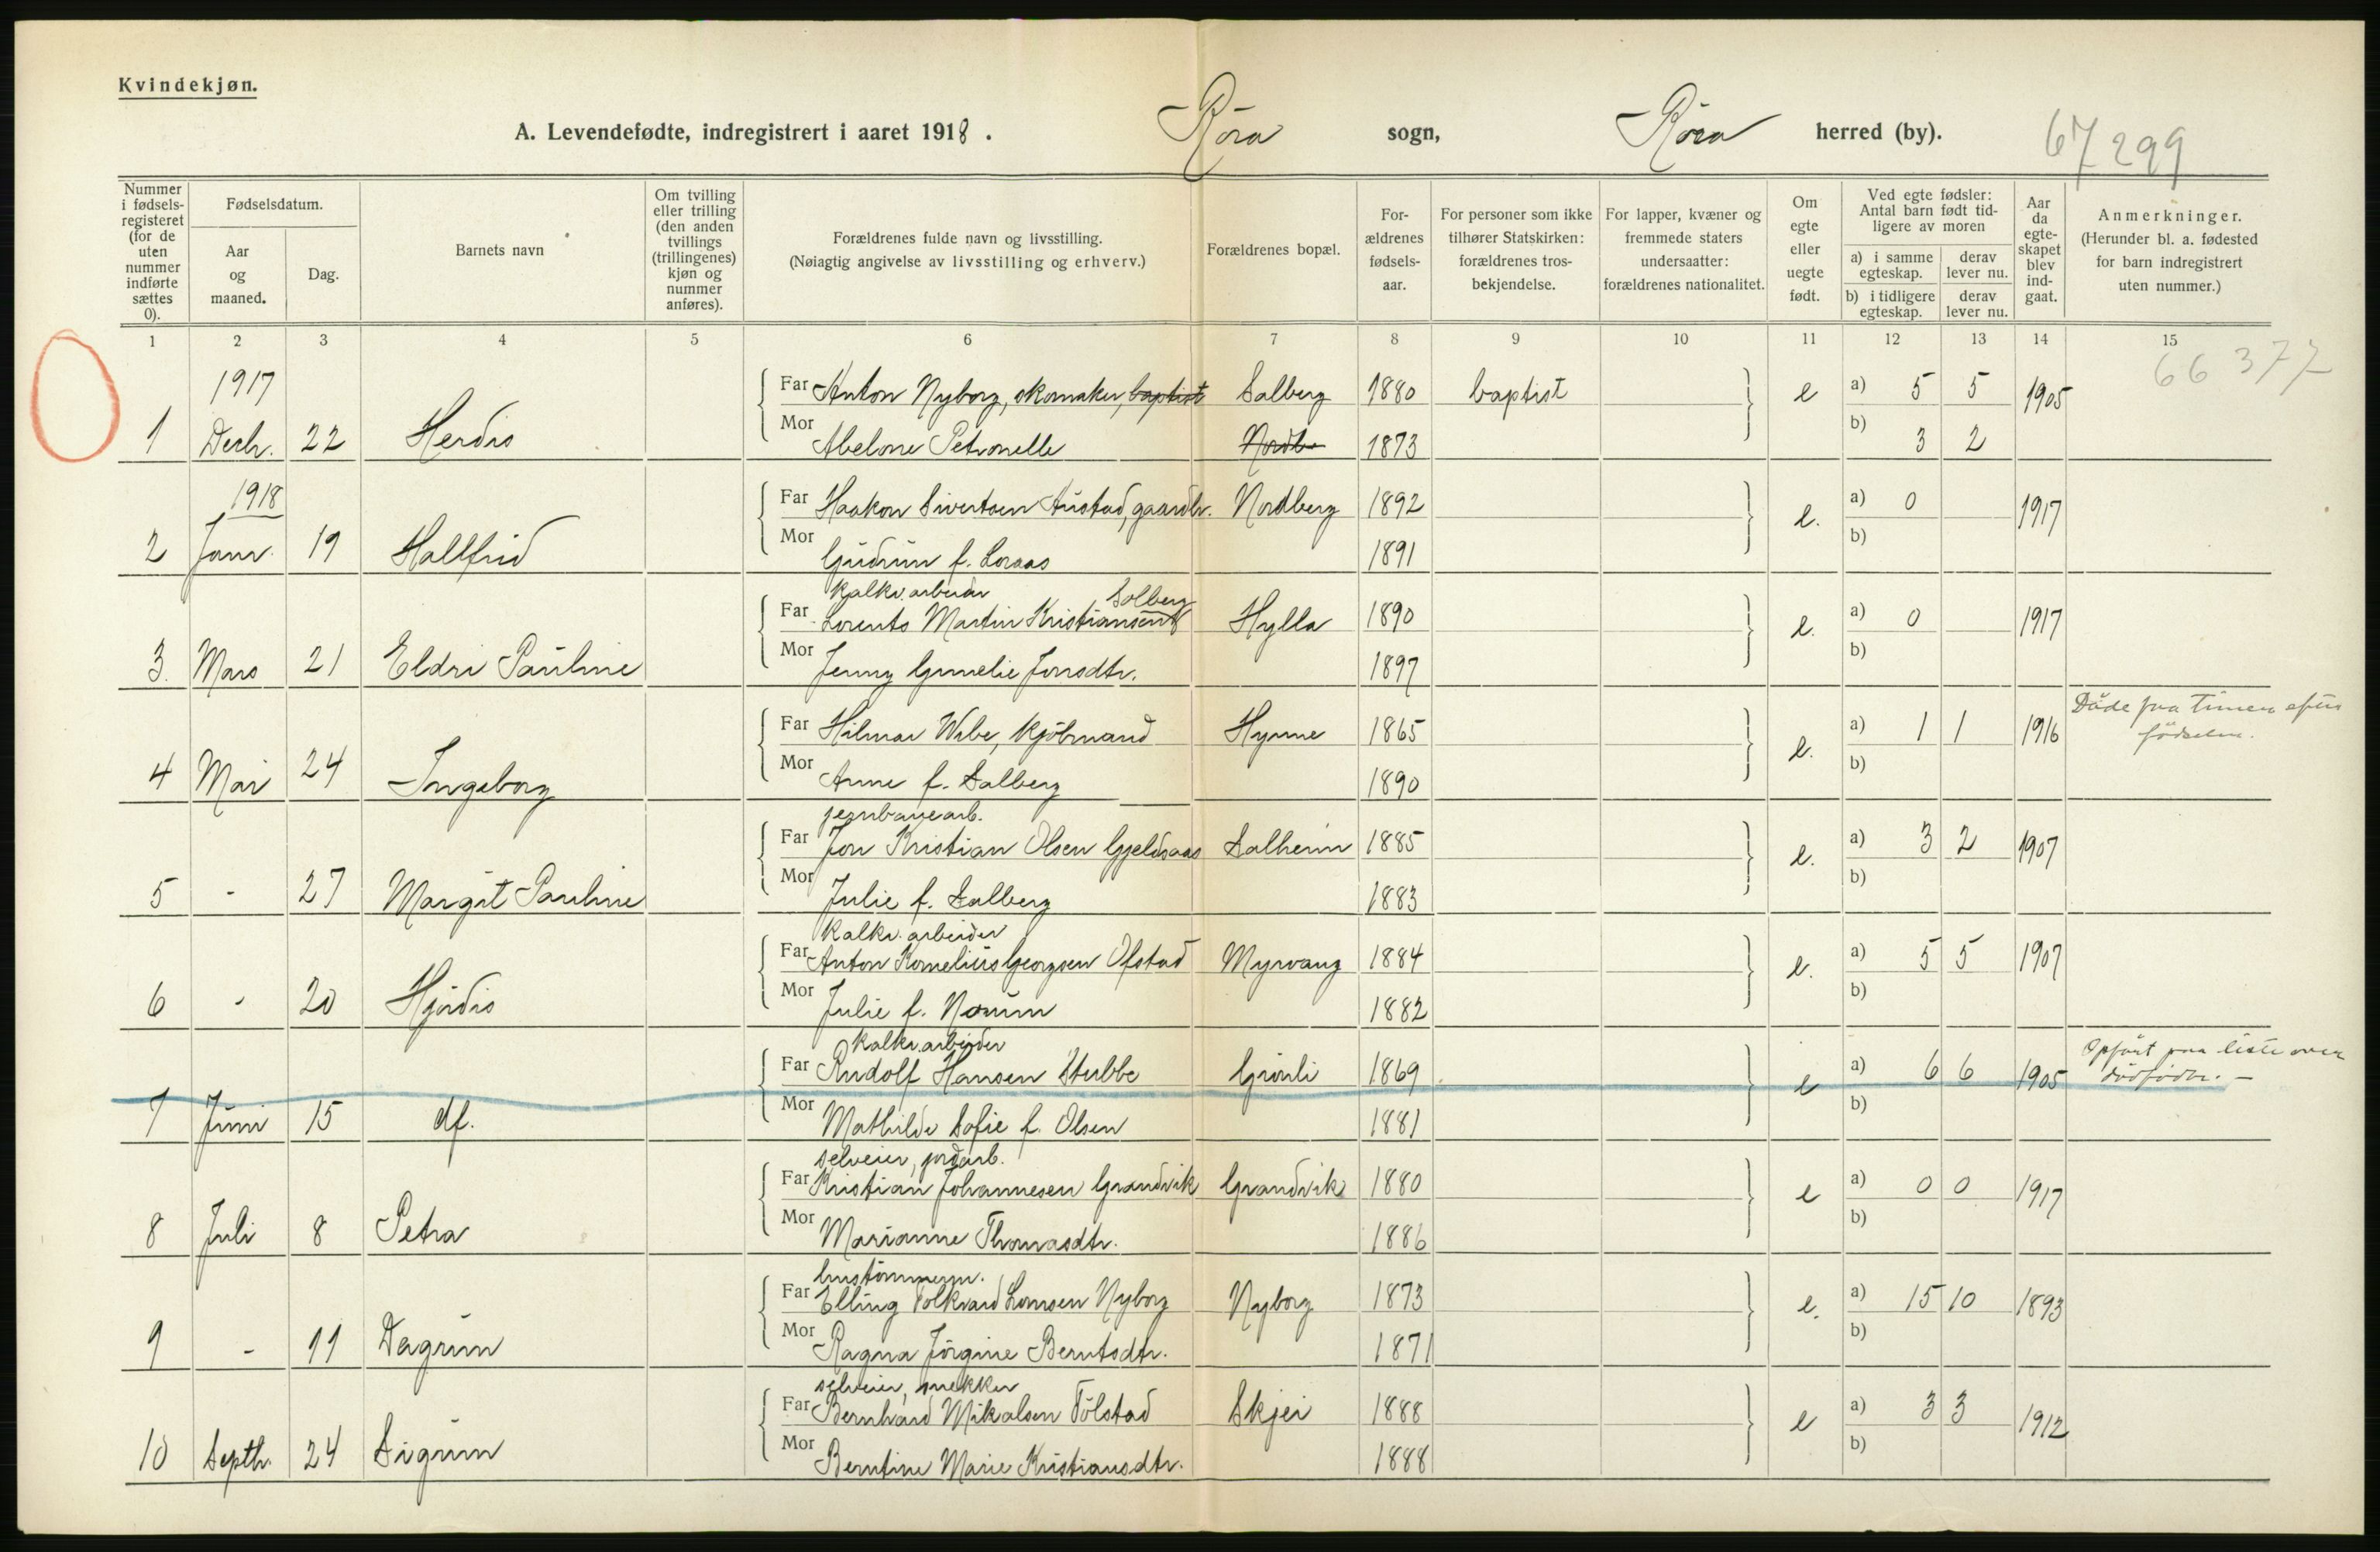 Kvindekjøn.
A. Levendefødte, indregistrert i aaret 1918. Röra sogn, Röra herred (by). 67 299
Nummer i fødsels-registeret (for de uten nummer indførte sættes 0).
Fødselsdatum.
Aar og maaned.
Dag.
Barnets navn
Om tvilling eller trilling (den anden tvillings (trillingenes) kjøn og nummer anføres).
Forældrenes fulde navn og livsstilling.
(Nøiagtig angivelse av livsstilling og erhverv.)
Forældrenes bopæl.
For-ældrenes fødsels-aar.
For personer som ikke tilhører Statskirken: forældrenes tros-bekjendelse.
For lapper, kvæner og fremmede staters undersaatter: forældrenes nationalitet.
Om egte eller uegte født.
Ved egte fødsler: Antal barn født tid-ligere av moren
a) i samme egteskap. derav lever nu.
b) i tidligere egteskap. derav lever nu.
Aar da egte-skapet blev ind-gaat.
Anmerkninger.
(Herunder bl. a. fødested for barn indregistrert uten nummer.)
1 2 3 4 5 6 7 8 9 10 11 12 13 14 15
66 377
1917
Far Anton Nyborg, skomaker, baptist Salberg 1880 baptist e a) 5 5 1905
1 Decbr. 22 Herdis Mor Abelone Petronelle Nordb 1873 b) 3 2
1918
Far Haakon Sivertsen Austad, gaardbr. Nordberg 1892 e. a) 0 1917
2 Janr. 19 Hallfrid Mor Gudrun f. Loraas 1891 b)
kalkv. arbeider Solberg
Far Lorents Martin Kristiansen Hylla 1890 e. a) 0 1917
3. Mars 21 Eldri Pauline Mor Jenny Gunelie Jonsdtr. 1897 b)
Far Hilmar Wibe, kjöbmand Hynne 1865 e. a) 1 1 1916 Döde paa timen efter
födselen.
4 Mai 24 Ingeborg Mor Anne f. Salberg 1890 b)
jernbanearb.
Far Jon Kristian Olsen Gjeldsaas Salheim 1885 e. a) 3 2 1907
5 - 27 Margit Pauline Mor Julie f. Salberg 1883 b)
kalkv. arbeider
Far Anton Kornelius Georgsen Ofstad Myrvang 1884 e. a) 5 5 1907
6 - 20 Hjördis Mor Julie f. Norum 1882 b)
kalkv. arbeider
Far Rudolf Hansen Stubbe Grönli 1869 e a) 6 6 1905 Opfört paa liste over
dödfödte. -
7 Juni 15 df. Mor Mathilde Sofie f. Olsen 1881 b)
selveier, jordarb.
Far Kristian Johannesen Grandvik Grandvik 1880 e a) 0 0 1917
8 Juli 8 Petra Mor Marianne Thomasdtr. 1886 b)
hustömmerm.
Far Elling Folkvard Larsen Nyborg Nyborg 1873 e. a) 15 10 1893
9 - 11 Dagrun Mor Ragna Jörgine Berntsdtr. 1871 b)
selveier, snekker
Far Bernhard Mikalsen Tölstad Skjei 1888 e a) 3 3 1912
10 Septbr. 24 Sigrun Mor Berntine Marie Kristiansdtr. 1888 b)